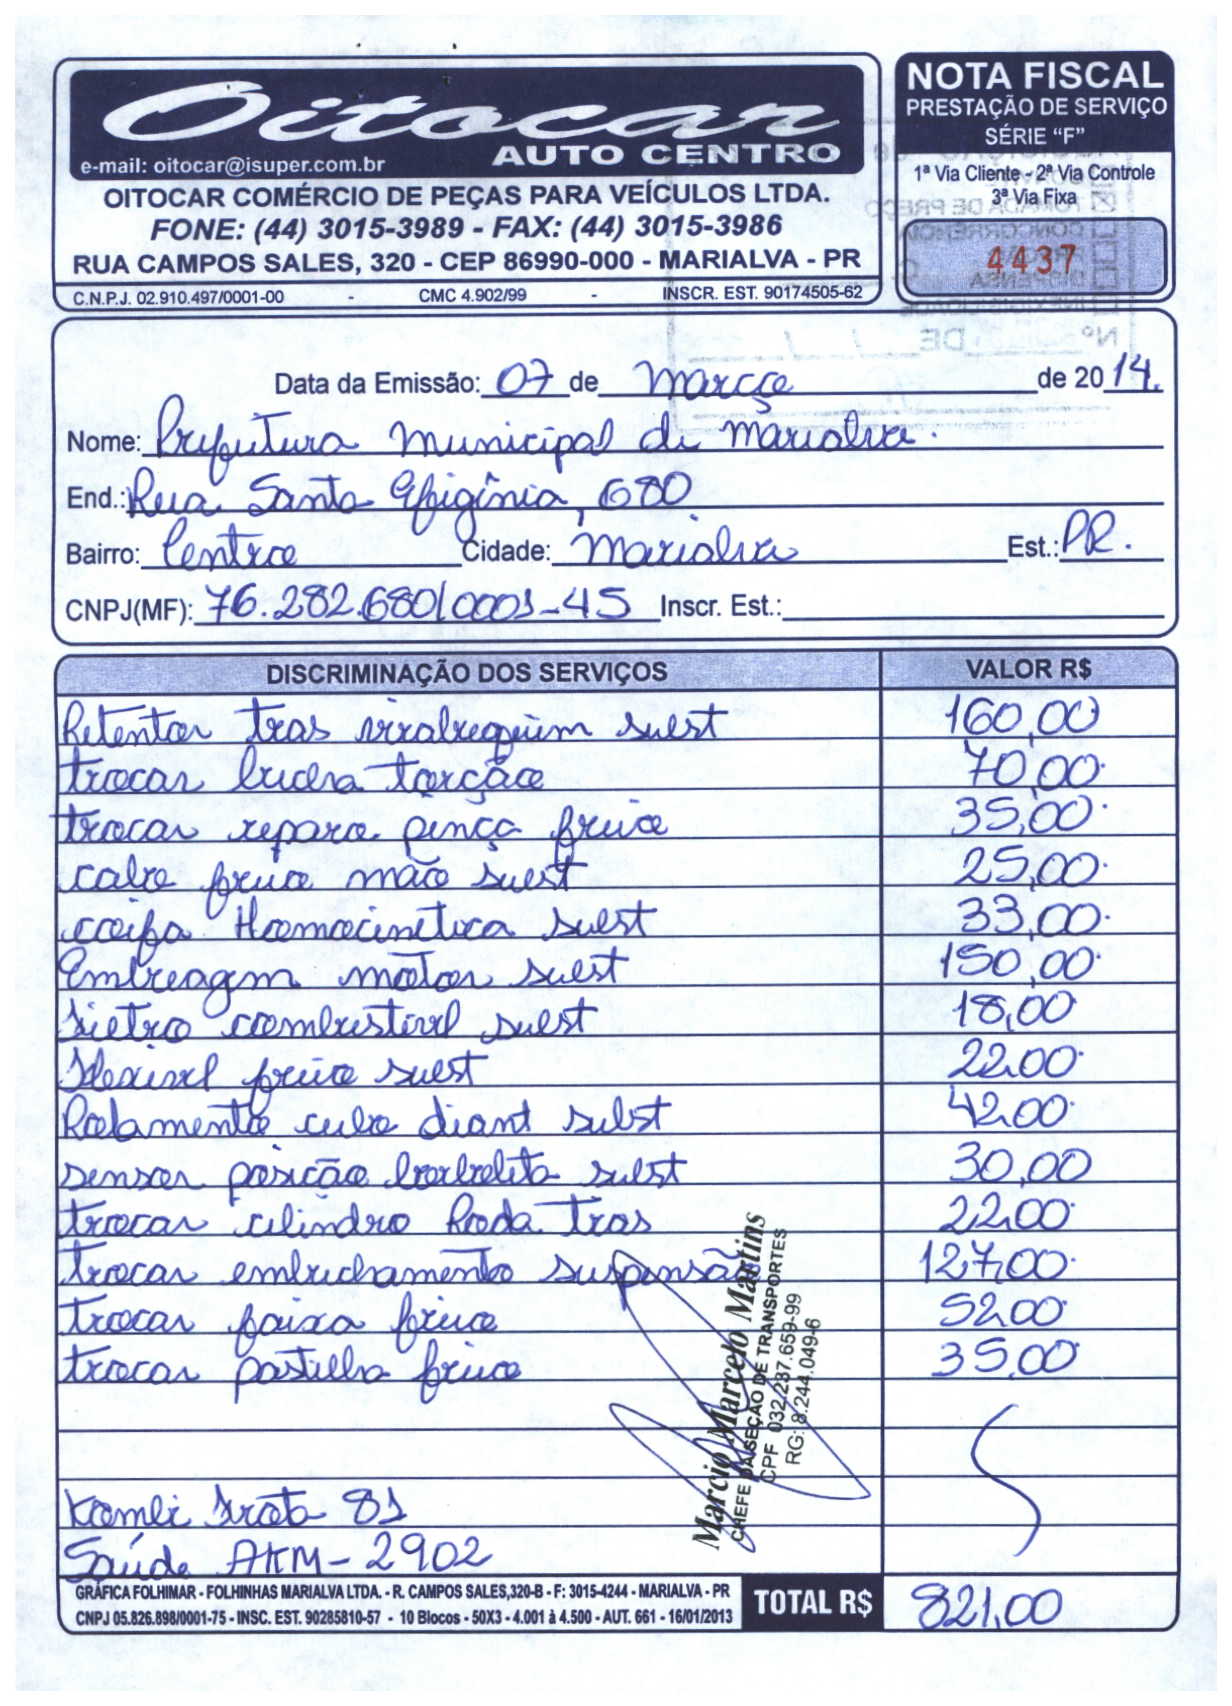 Oitocar
AUTO CENTRO
e-mail: oitocar@isuper.com.br
OITOCAR COMÉRCIO DE PEÇAS PARA VEÍCULOS LTDA.
FONE: (44) 3015-3989 - FAX: (44) 3015-3986
RUA CAMPOS SALES, 320 - CEP 86990-000 - MARIALVA - PR
C.N.P.J. 02.910.497/0001-00 - CMC 4.902/99 - INSCR. EST. 90174505-62
NOTA FISCAL
PRESTAÇÃO DE SERVIÇO
SÉRIE “F”
1ª Via Cliente - 2ª Via Controle
3ª Via Fixa
4437
Data da Emissão: 07 de Março de 2014.
Nome: Prefeitura Municipal de Marialva.
End.: Rua Santa Efigênia, 680
Bairro: Centro Cidade: Marialva Est.: PR.
CNPJ(MF): 76.282.680/0001-45 Inscr. Est.:
DISCRIMINAÇÃO DOS SERVIÇOS VALOR R$
Retentor tras virabrequim subst 160,00
trocar bucha torção 70,00
trocar reparo pinça freio 35,00
cabo freio mão subst 25,00
coifa Homocinetica subst 33,00
Embreagem motor subst 150,00
Filtro combustivel subst 18,00
Flexivel freio subst 22,00
Rolamento cubo diant subst 42,00
sensor posição borboleta subst 30,00
trocar cilindro Roda tras 22,00
trocar embuchamento suspensão 127,00
trocar faixa freio 52,00
trocar pastilha freio 35,00
Marcio Marcelo Martins
CHEFE DA SEÇÃO DE TRANSPORTES
CPF 032.237.659-99
RG: 8.244.049-6
Kombi Frota 81
Saúde AKM-2902
GRÁFICA FOLHIMAR - FOLHINHAS MARIALVA LTDA. - R. CAMPOS SALES,320-B - F: 3015-4244 - MARIALVA - PR
CNPJ 05.826.898/0001-75 - INSC. EST. 90285810-57 - 10 Blocos - 50X3 - 4.001 à 4.500 - AUT. 661 - 16/01/2013
TOTAL R$ 821,00